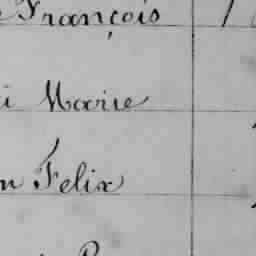 François
Marie
Felix